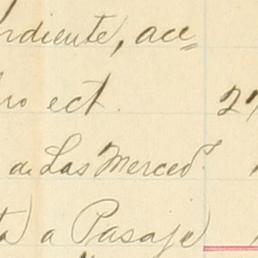 rdiente, ace=
ro ect. 27
a de Las Merced.s
ta) a Pasaje